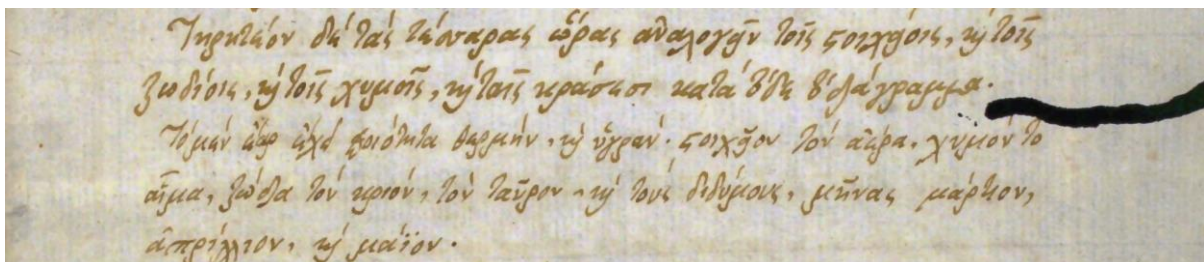 Τηρητέον δὲ τὰς τέσσαρας ὥρας ἀναλογεῖν τοῖς στοιχείοις, καὶ τοῖς
ζωδίοις, καὶ τοῖς χυμοῖς, καὶ ταῖς κράσεσι κατὰ τόδε τὸ διάγραμμα.
Τὸ μὲν ἔαρ ἔχει ποιότητα θερμὴν, καὶ ὑγράν. στοιχεῖον τὸν ἀέρα, χυμὸν τὸ
αἷμα, ζώδια τὸν κριόν, τὸν ταῦρον, καὶ τοὺς διδύμους, μῆνας μάρτιον,
ἀπρίλλιον, καὶ μάϊον.